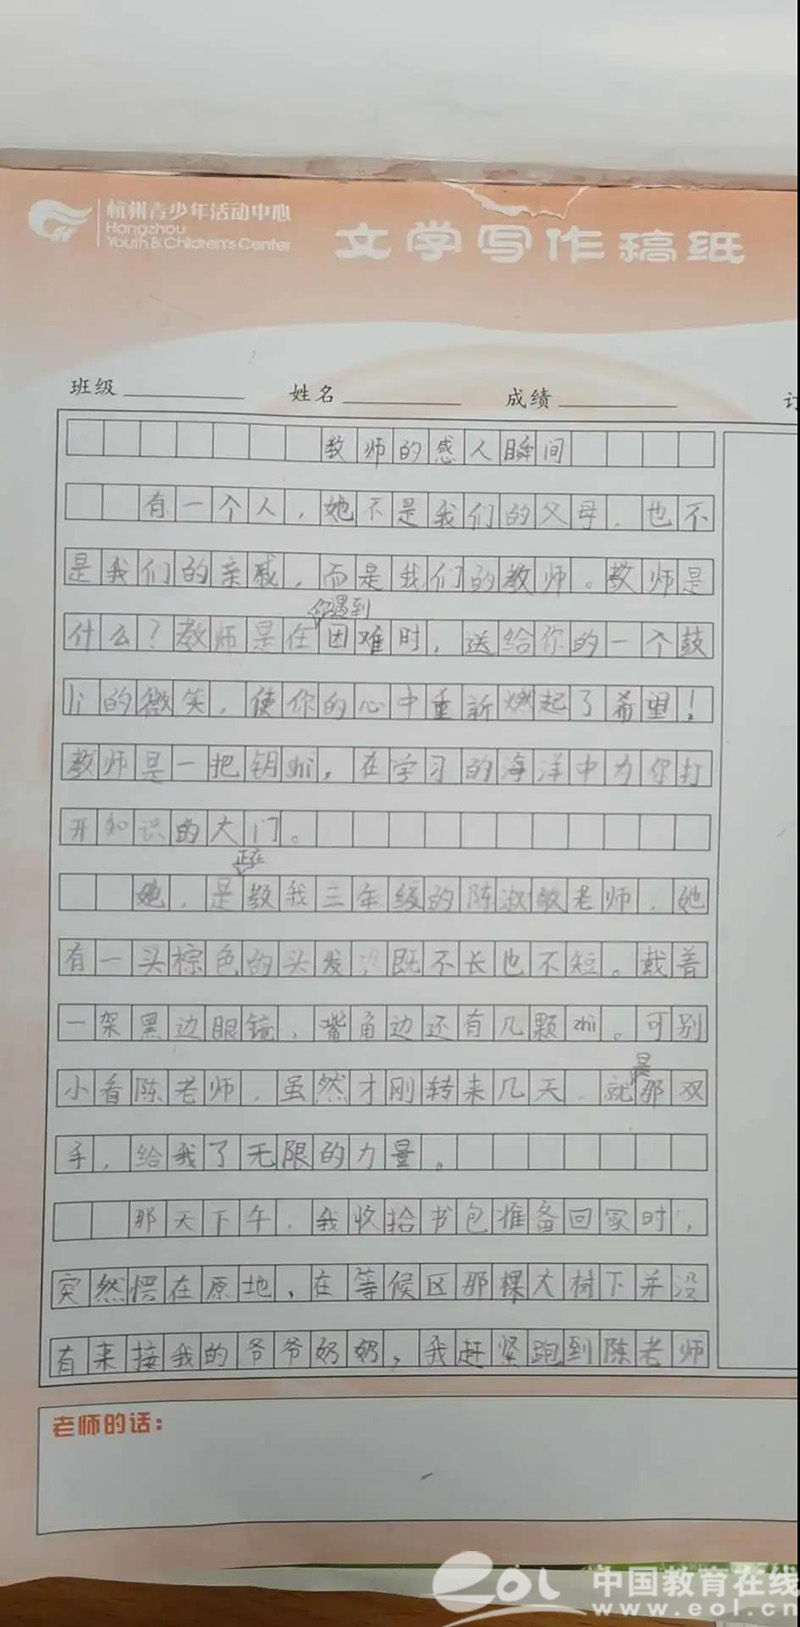 杭州青少年活动中心
Hangzhou
Youth & Children's Center
文学写作稿纸
班级 姓名 成绩 订
教师的感人瞬间
有一个人，她不是我们的父母，也不
是我们的亲戚，而是我们的教师。教师是
你遇到
什么？教师是在困难时，送给你的一个鼓
li的微笑，使你的心中重新燃起了希望！
教师是一把钥shi，在学习的海洋中为你打
开知识的大门。
正在
她，是教我三年级的陈淑敏老师，她
有一头棕色的头发，既不长也不短。戴着
一架黑边眼镜，嘴角边还有几颗zhi。可别
是
小看陈老师，虽然才刚转来几天，就那双
手，给我了无限的力量。
那天下午，我收拾书包准备回家时，
突然愣在原地，在等候区那棵大树下并没
有来接我的爷爷奶奶，我赶紧跑到陈老师
老师的话：
eol 中国教育在线
www.eol.cn